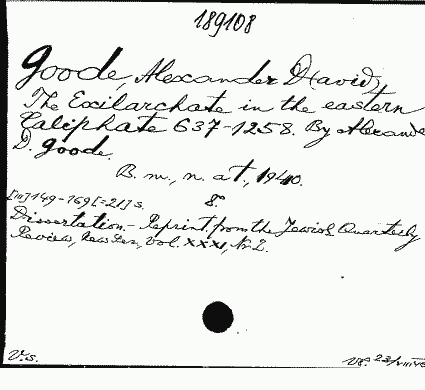 189108
Goode, Alexander D(avid),
The Exilarchate in the eastern
Caliphate 637-1258. By Alexande
D. Goode.
B. m., n. at., 1940.
[III] 149-169 [=21] s. 8°
Dissertation.- Reprint from the Jewish Quarterly
Review, New Ser., Vol. XXXI, Nr 2.
V.s.